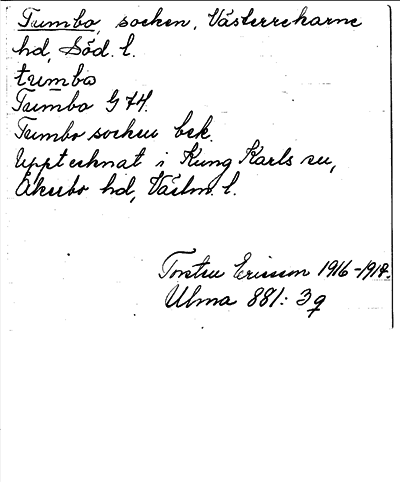 Tumbo, socken, Västerrekarne
hd, Söd. l.
tumbo
Tumbo G 74.
Tumbo socken bek.
Upptecknat i Kung Karls sn,
Åkerbo hd, Västm. l.
Torsten Ericsson 1916-1917.
Ulma 881: 39